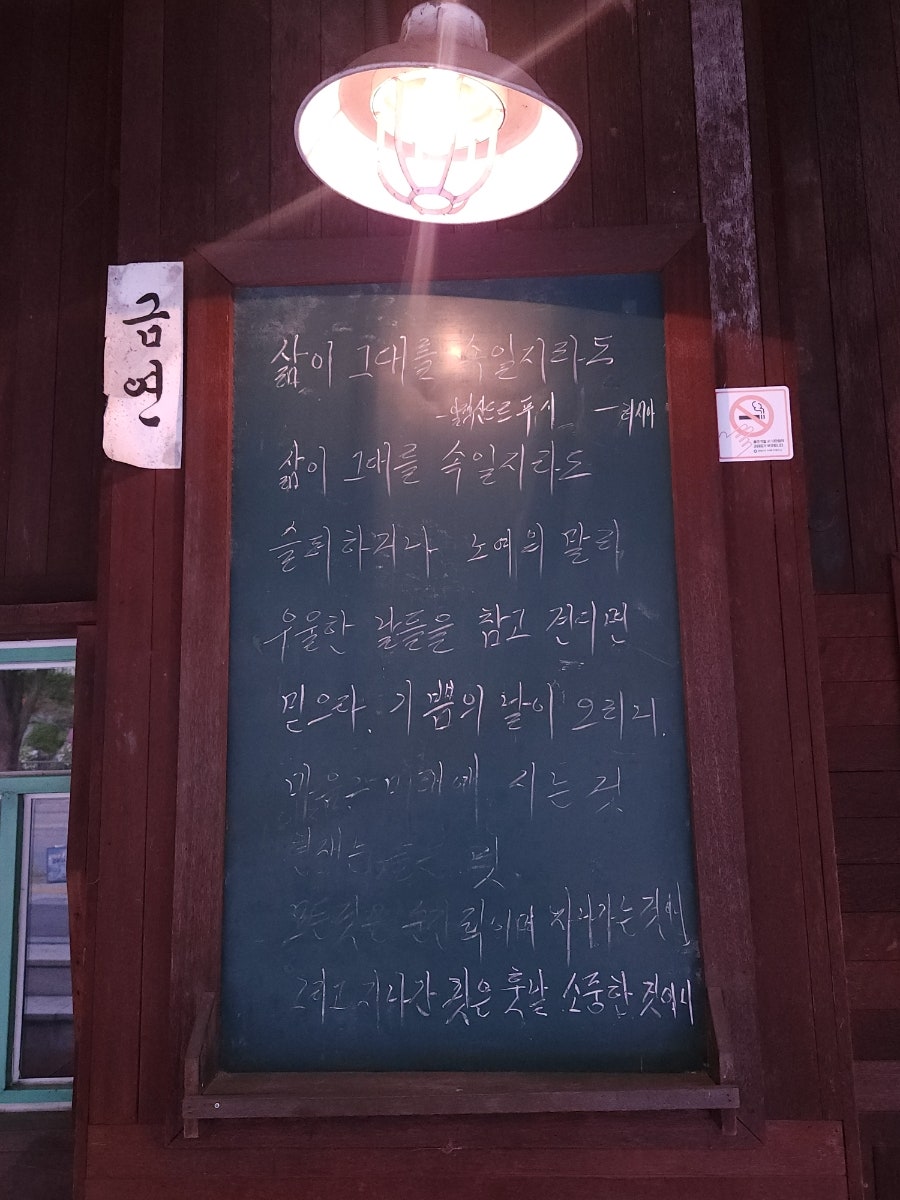 금연
삶이 그대를 속일지라도
러시아
삶이 그대를 속일지라도
슬퍼하거나 노여워 말라
우울한 날들을 참고 견디면
믿으라. 기쁨의 날이 오리니.
마음은 미래에 사는 것
현재는
모든 것은 순간적이며 지나가는 것이니
그리고 지나간 것은 훗날 소중한 것이니